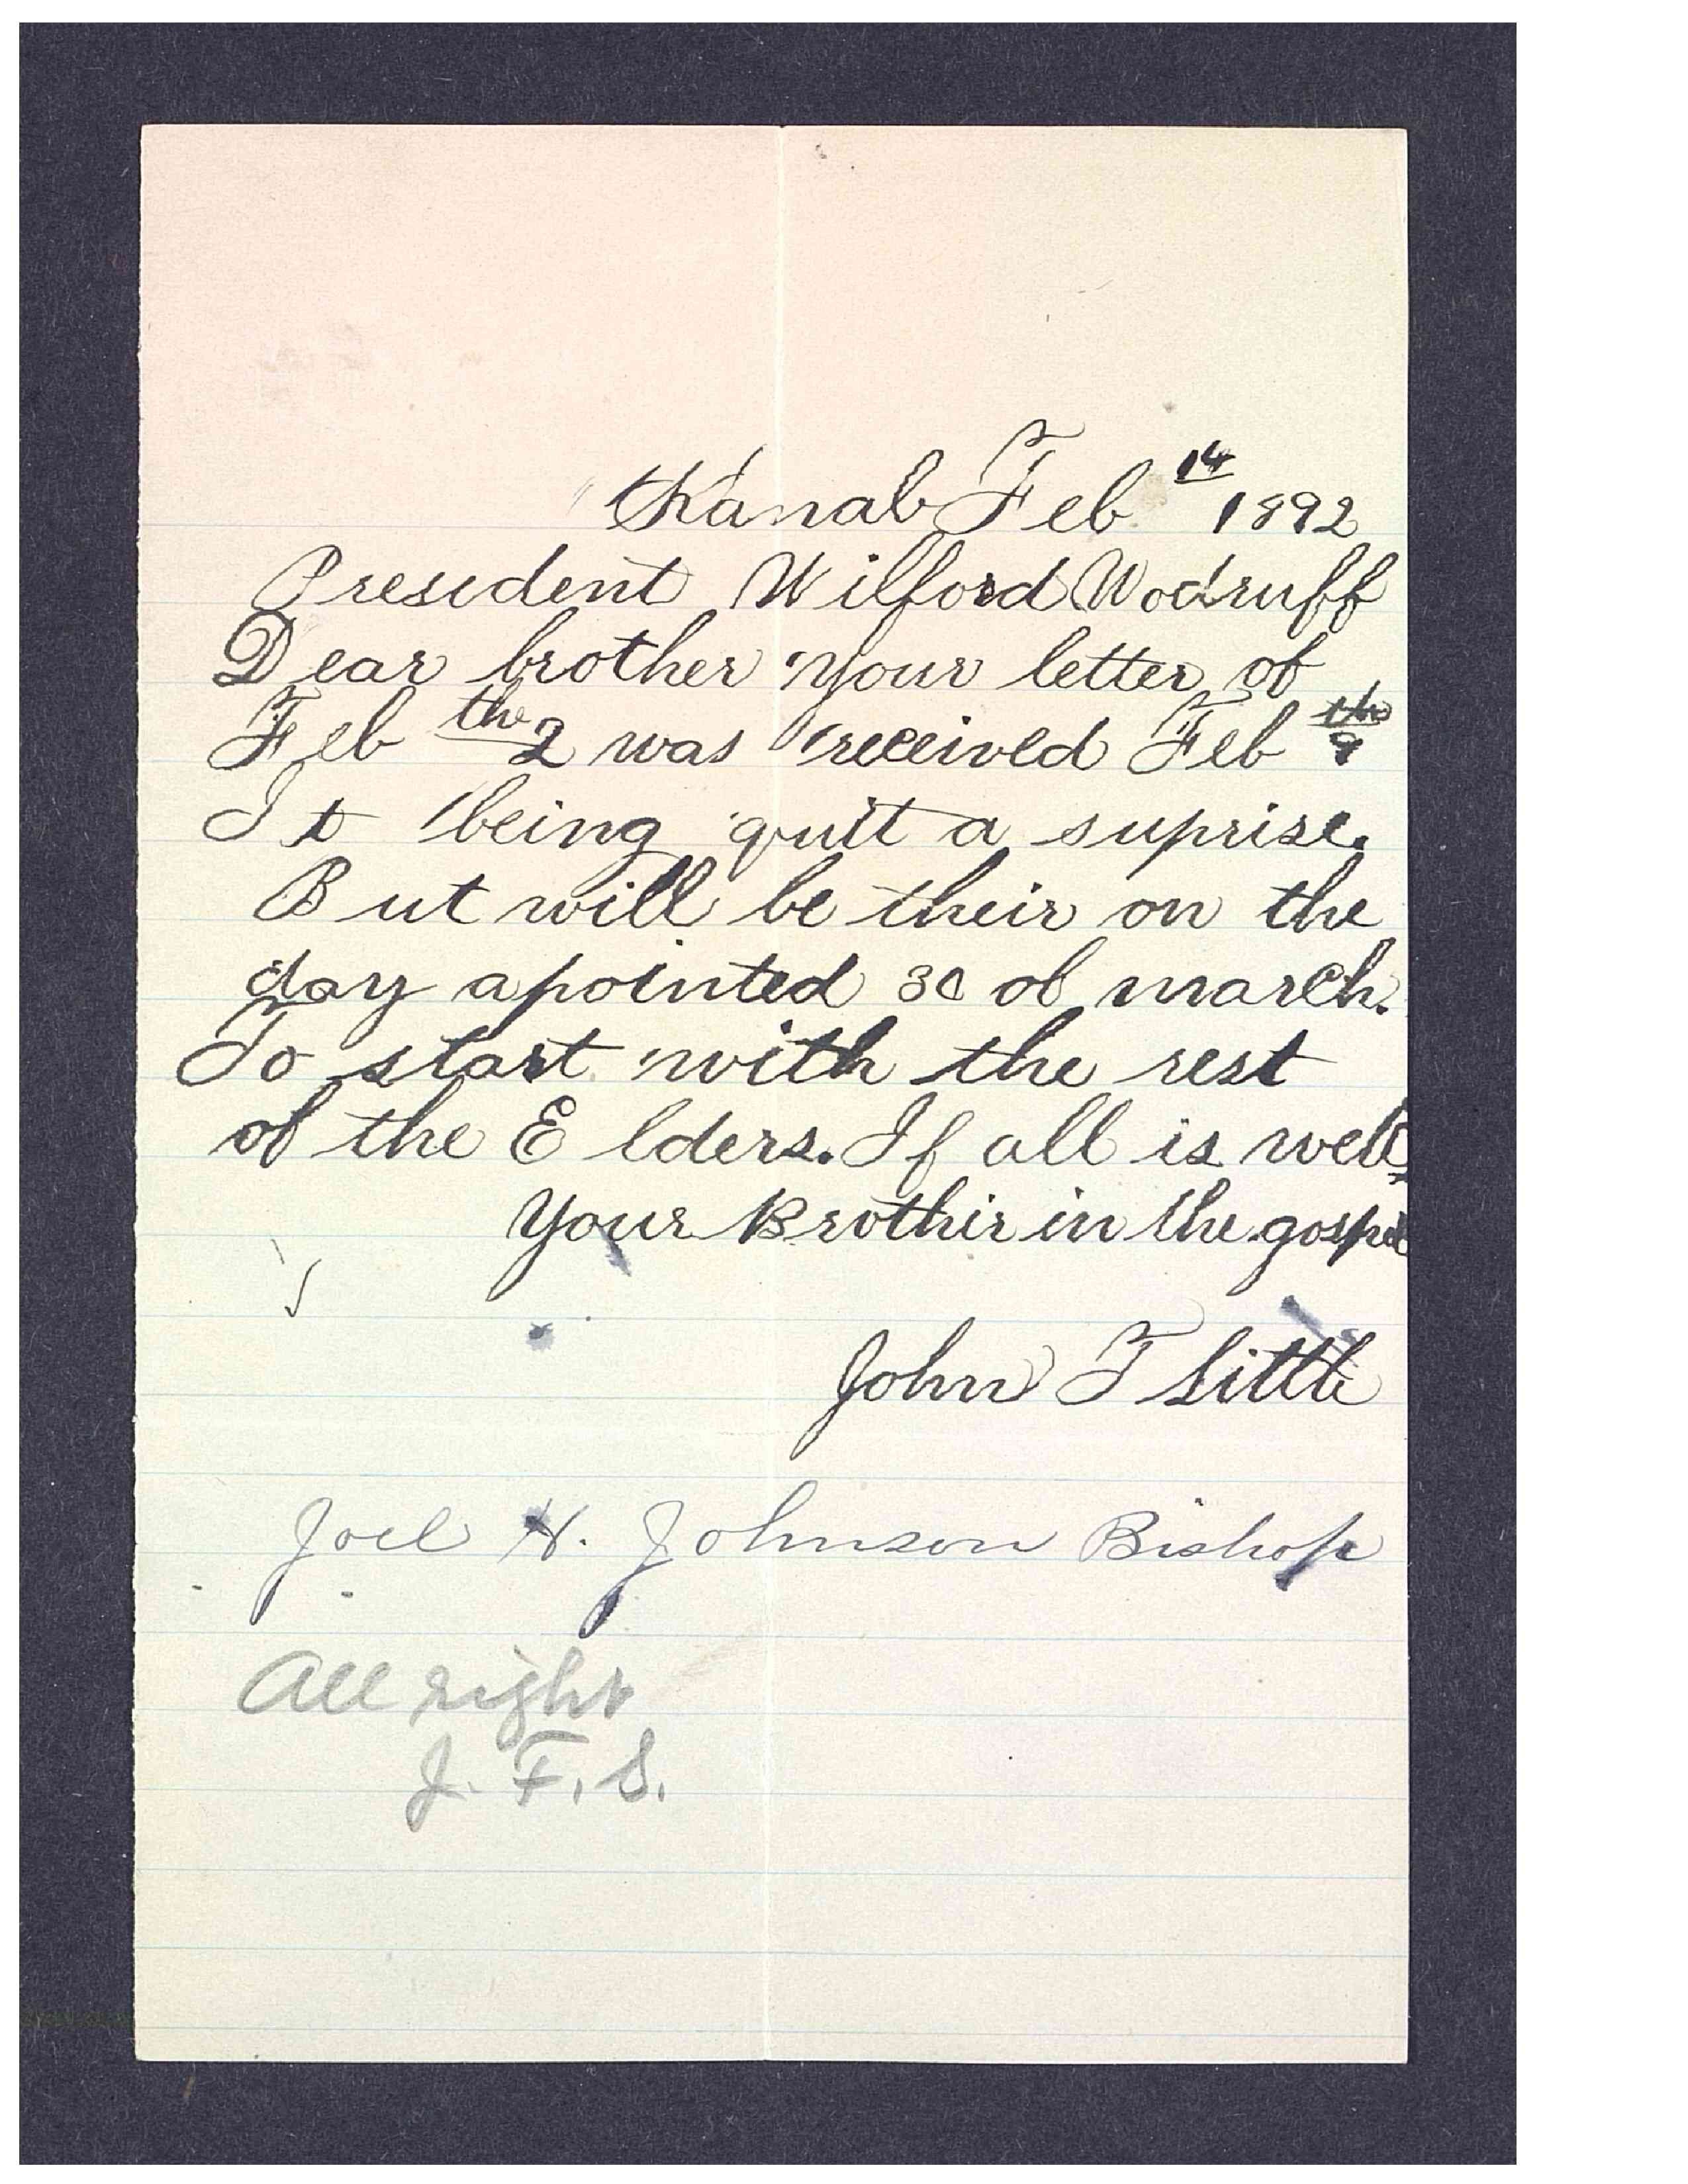 Kanab Feb 14 1892
President Wilford Wodruff
Dear brother your letter of
Feb th 2 was received Feb th 9
It being quit a suprise.
But will be their on the
day apointed 30 of march.
To start with the rest
of the Elders. If all is well.
Your Brother in the gospel
John F Little
Joel H. Johnson Bishop
All right
J. F. S.